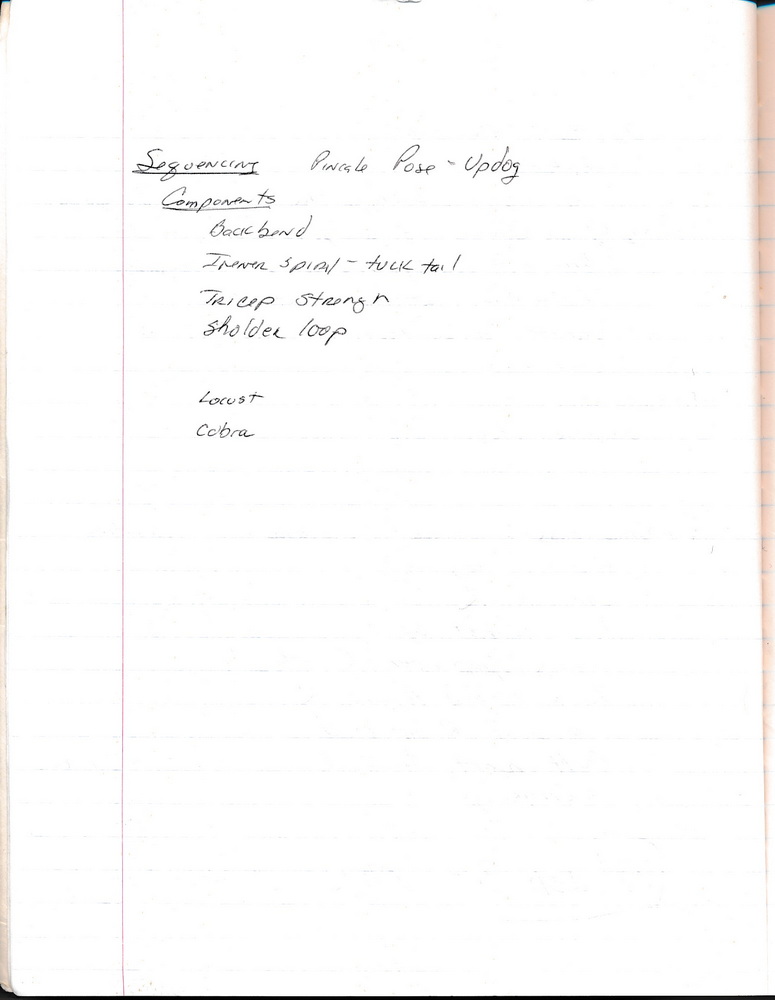 Sequencing Pincale Pose - Updog
Components
Backbend
Inener spiral - tuck tail
Tricep strengh
sholder loop
Locust
Cobra